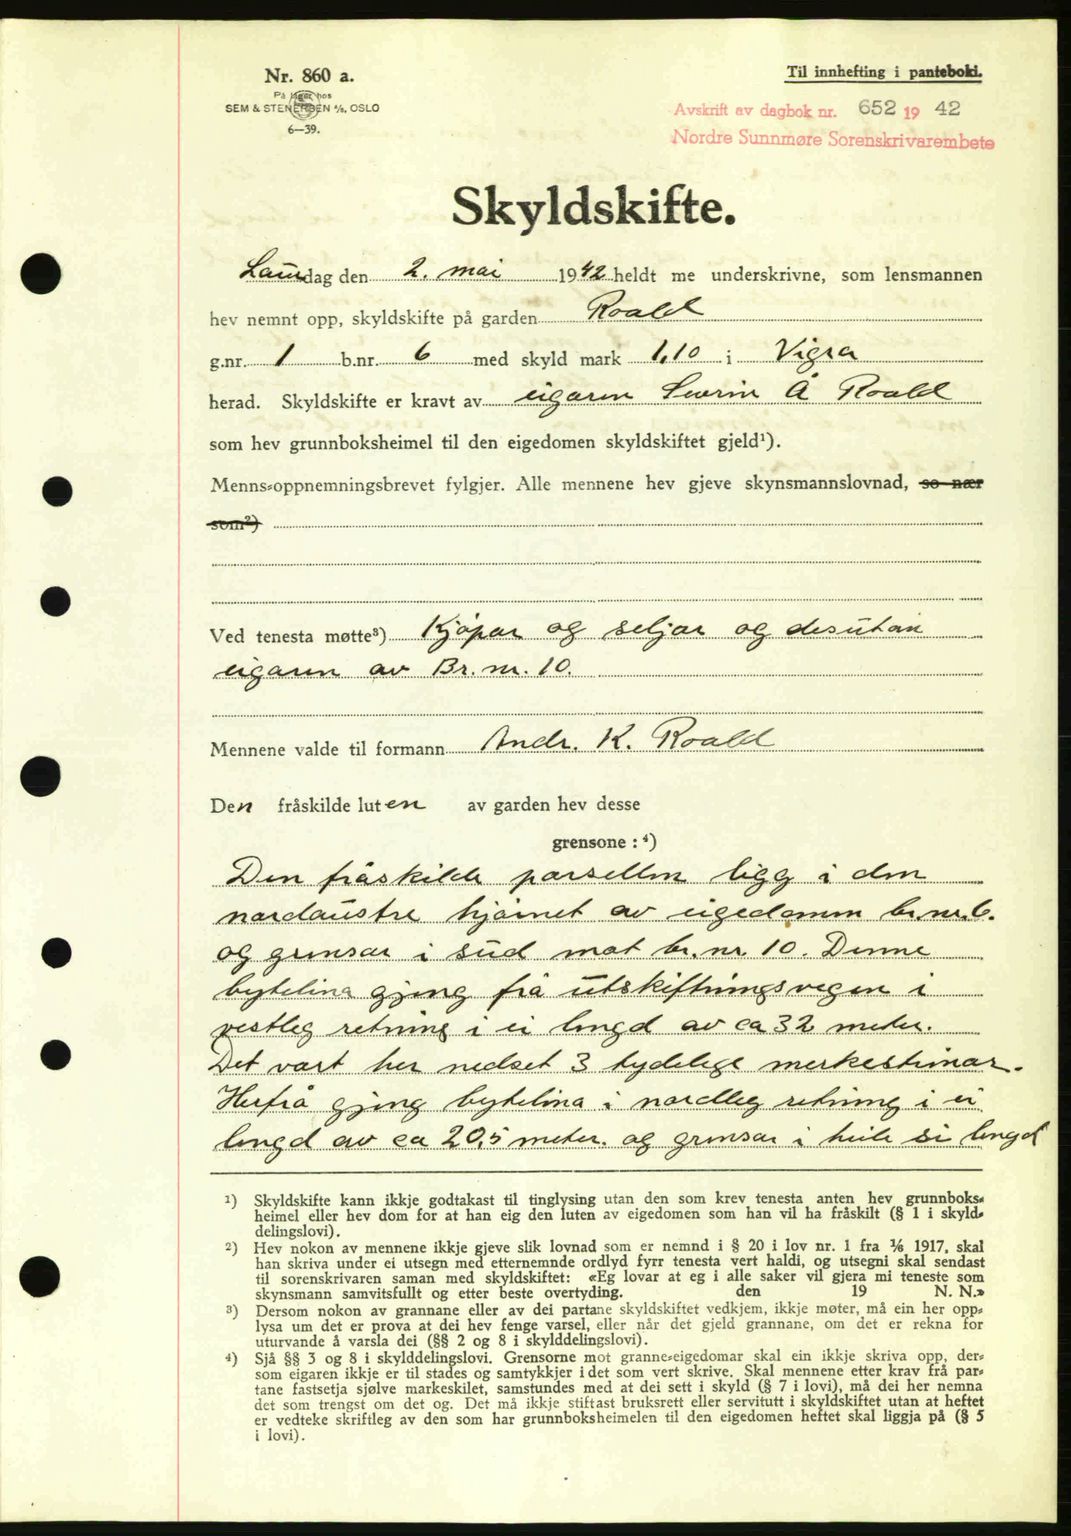 Nr. 860 a.
På lager hos
SEM & STENERSEN A/S, OSLO
6—39.
Til innhefting i panteboki.
Avskrift av dagbok nr. 652 19 42
Nordre Sunnmøre Sorenskrivarembete
Skyldskifte.
Laurdag den 2. mai 1942 heldt me underskrivne, som lensmannen
hev nemnt opp, skyldskifte på garden Roald
g.nr. 1 b.nr. 6 med skyld mark 1,10 i Vigra
herad. Skyldskifte er kravt av eigaren Severin Å Roald
som hev grunnboksheimel til den eigedomen skyldskiftet gjeld¹).
Menns-oppnemningsbrevet fylgjer. Alle mennene hev gjeve skynsmannslovnad, so nær
som²)
Ved tenesta møtte³) Kjøpar og seljar og desutan
eigaren av Br. nr. 10.
Mennene valde til formann Andr. K. Roald
Den fråskilde luten av garden hev desse
grensone : ⁴)
Den fråskilde parsellen ligg i den
nordaustre hjørnet av eigedomen br.nr. 6.
og grensar i sud mot br. nr. 10. Denne
bytelina gjeng frå utskiftningsvegen i
vestleg retning i ei lengd av ca 32 meter.
Det vart her nedset 3 tydelege merkesteinar.
Herfrå gjeng bytelina i nordleg retning i ei
lengd av ca 20,5 meter. og grensar i heile si lengd
¹) Skyldskifte kann ikkje godtakast til tinglysing utan den som krev tenesta anten hev grunnboks-
heimel eller hev dom for at han eig den luten av eigedomen som han vil ha fråskilt (§ 1 i skyld-
delingslovi).
²) Hev nokon av mennene ikkje gjeve slik lovnad som er nemnd i § 20 i lov nr. 1 fra 1/6 1917, skal
han skriva under ei utsegn med etternemnde ordlyd fyrr tenesta vert haldi, og utsegni skal sendast
til sorenskrivaren saman med skyldskiftet: «Eg lovar at eg i alle saker vil gjera mi teneste som
skynsmann samvitsfullt og etter beste overtyding. den 19 N. N.»
³) Dersom nokon av grannane eller av dei partane skyldskiftet vedkjem, ikkje møter, må ein her opp-
lysa um det er prova at dei hev fenge varsel, eller når det gjeld grannane, om det er rekna for
uturvande å varsla dei (§§ 2 og 8 i skylddelingslovi).
⁴) Sjå §§ 3 og 8 i skylddelingslovi. Grensorne mot granne-eigedomar skal ein ikkje skriva opp, der-
som eigaren ikkje er til stades og samtykkjer i det som vert skrive. Skal mennene etter krav frå par-
tane fastsetja sjølve markeskilet, samstundes med at dei sett i skyld (§ 7 i lovi), må dei her nemna
det som trengst om det og. Det må ikkje stiftast bruksrett eller servitutt i skyldskiftet utan at heftet
er vedteke skriftleg av den som har grunnboksheimelen til den eigedomen heftet skal liggja på (§ 5
i lovi).